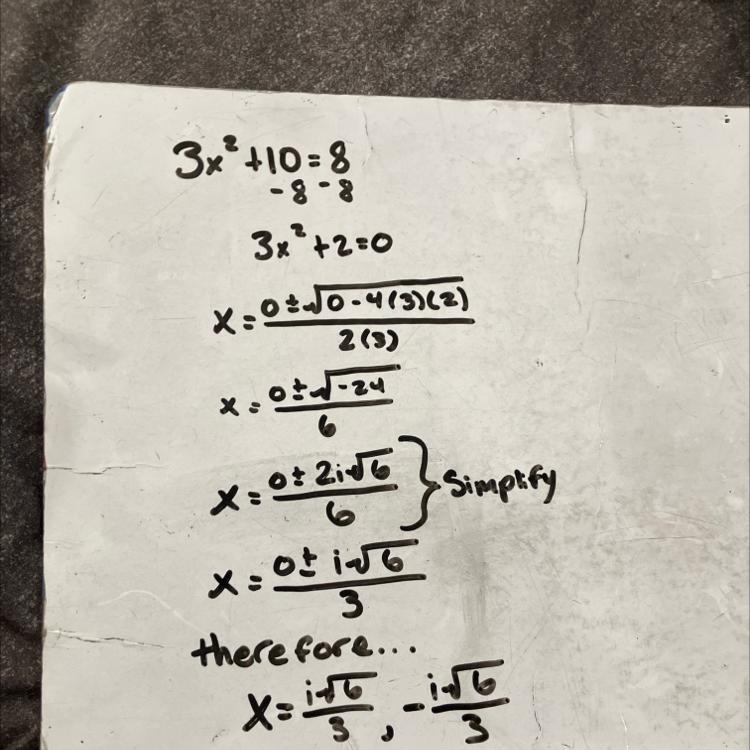 3x²+10=8
-8 -8
3x²+2=0
x=0±√0-4(3)(2)/2(3)
x=0±√-24/6
x=0±2i√6/6 } Simplify
x=0±i√6/3
therefore...
x=i√6/3, -i√6/3